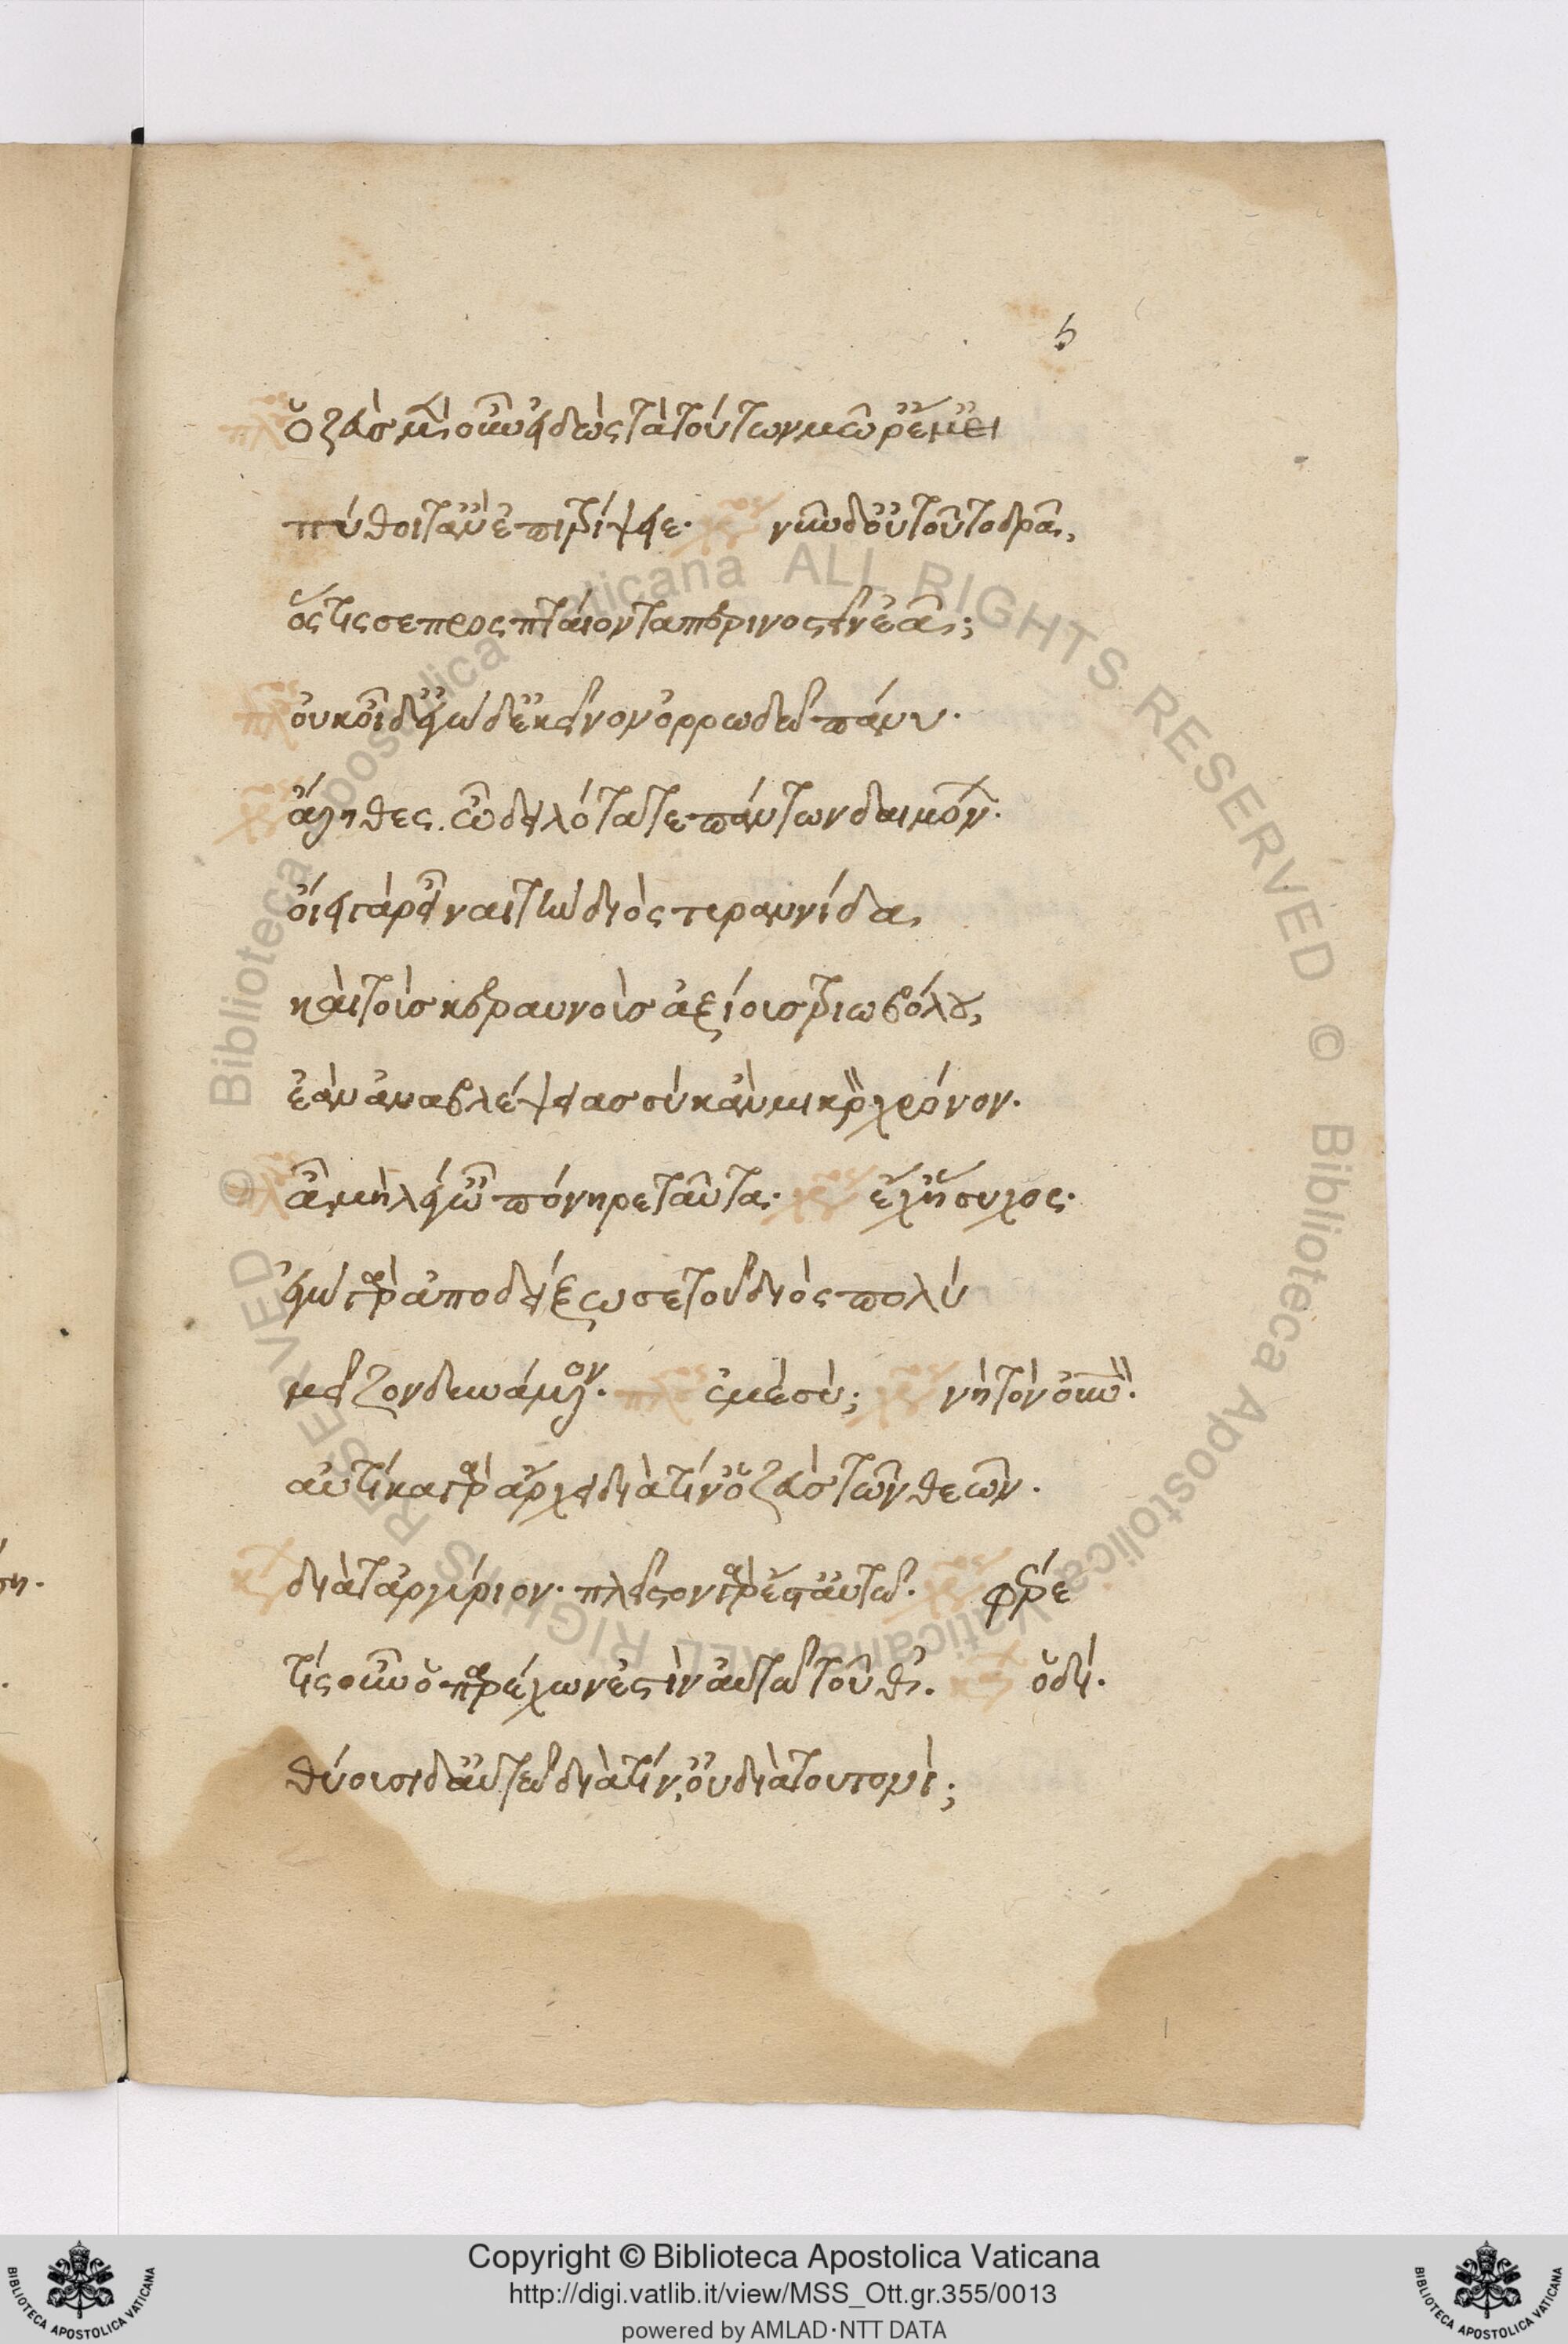 5
πλ ὁ ζεὺσ μὲν οὖν εἰδὼς τὰ τούτων μῶρ' ἔμ' εἰ
πύθοιτ' ἂν ἐπιτρίψειε· χρ νῦν δ' οὐ τοῦτο δρᾶ,
ὅς τις σε προς πταίοντα περινοστεῖν ἐᾶ;
πλ οὐκ οἶδ' ἐγὼ δ' ἐκεῖνον ὀρρωδῶ πάνυ.
χρ ἄληθες. ὦ δειλότατε πάντων δαιμόνων.
οἴει γὰρ εἶναι τὴν διὸς τυραννίδα,
καὶ τοὺσ κεραυνοὺσ ἀξίους τριωβόλου,
ἐὰν ἀναβλέψης σὺ κἂν μικρὸν χρόνον.
πλ ἆ μὴ λέγ' ὦ πόνηρε ταῦτα· χρ ἔχ' ἥσυχος.
ἐγὼ γὰρ ἀποδείξω σε τοῦ διὸς πολὺ
μεῖζον δυνάμενον. πλ ἐμὲ σύ; χρ νὴ τὸν οὐνον.
αὐτίκα γὰρ ἄρχει διὰ τίν' ὁ ζεὺσ τῶν θεῶν.
κα διὰ τἀργύριον. πλεῖστον γὰρ ἔστ' αὐτῶ. χρ φέρε
τίς οὖν ὁ παρέχων ἐστὶν αὐτῶ τοῦθ'. κα ὁδί.
θύουσι δ' αὐτῶ διὰ τίν', οὐ διὰ τουτονὶ;
© Biblioteca Apostolica Vaticana ALL RIGHTS RESERVED © Biblioteca Apostolica Vaticana ALL RIGHTS RESERVED
BIBLIOTECA APOSTOLICA VATICANA
Copyright © Biblioteca Apostolica Vaticana
http://digi.vatlib.it/view/MSS_Ott.gr.355/0013
powered by AMLAD·NTT DATA
BIBLIOTECA APOSTOLICA VATICANA